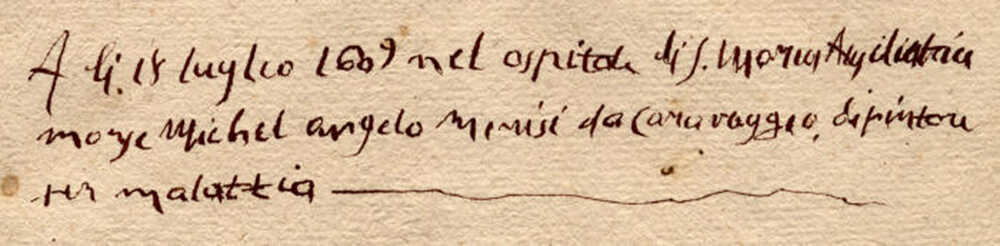 A li 18 luglio 1609 nel ospitale di S. Maria Ausiliatrice
morse Michel angelo Merisi da Caravaggio, dipintore
per malattia